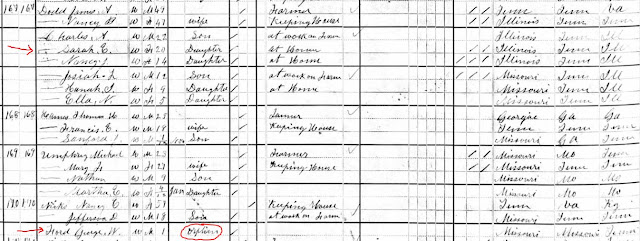 163 164 Dodd James A. W M 47 Farmer Tenn Tenn Va
— Nancy W F 41 wife Keeping House Illinois Tenn Ill
— Charles A. W M 22 Son at work on Farm Illinois Tenn Ill
— Sarah E. W F 20 Daughter at Home Illinois Tenn Ill
— Nancy J W F 14 Daughter at Home Illinois Tenn Ill
— Josiah W M 12 Son at work on Farm Missouri Tenn Ill
— Hanah W F 8 Daughter at Home Missouri Tenn Ill
— Ella N. W F 5 Daughter Missouri Tenn Ill
165 165 Thomas W M 25 Georgia Ga Ga
— Francis E. W F 18 wife Keeping House Tenn Tenn Tenn
— Sanford W M Son Missouri Ga Tenn
169 167 Umphrey Michael W M 23 Farmer Missouri Mo Tenn
— Mary W F 27 wife Keeping House Missouri Tenn Tenn
— Nathan W M 9 Son Missouri Mo Mo
— Martha E. W F Jan Daughter Missouri Mo Mo
170 170 Hicks Nancy E W F 51 Keeping House Tenn Va Ky
Jefferson D W M 18 Son at work on Farm Missouri Tenn Tenn
Ford George W. W M 1 Orphan Missouri Missouri Tenn